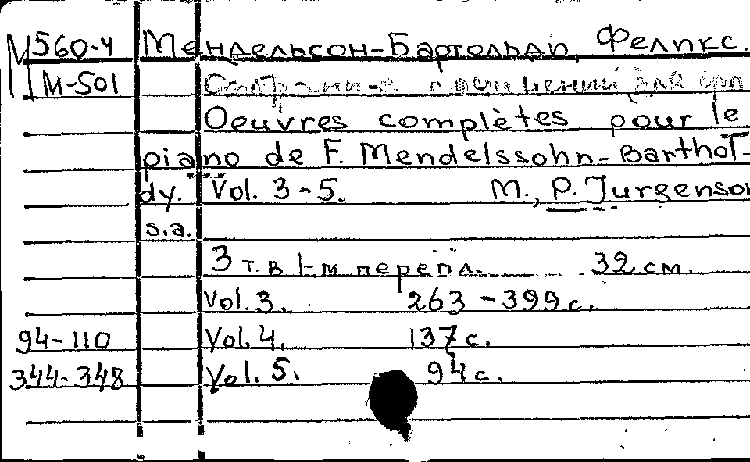 М560-4 Мендельсон-Бартольди, Феликс.
М-501 Собрание сочинений для фп
Oeuvres complètes pour le
piano de F. Mendelssohn-Barthol-
dy. Vol. 3-5. М., P. Jurgenson
s.a.
3 т. в 1-м перепл. 32 см.
Vol. 3. 263-399 с.
94-110 Vol. 4. 137 с.
344-348 Vol. 5. 94 с.